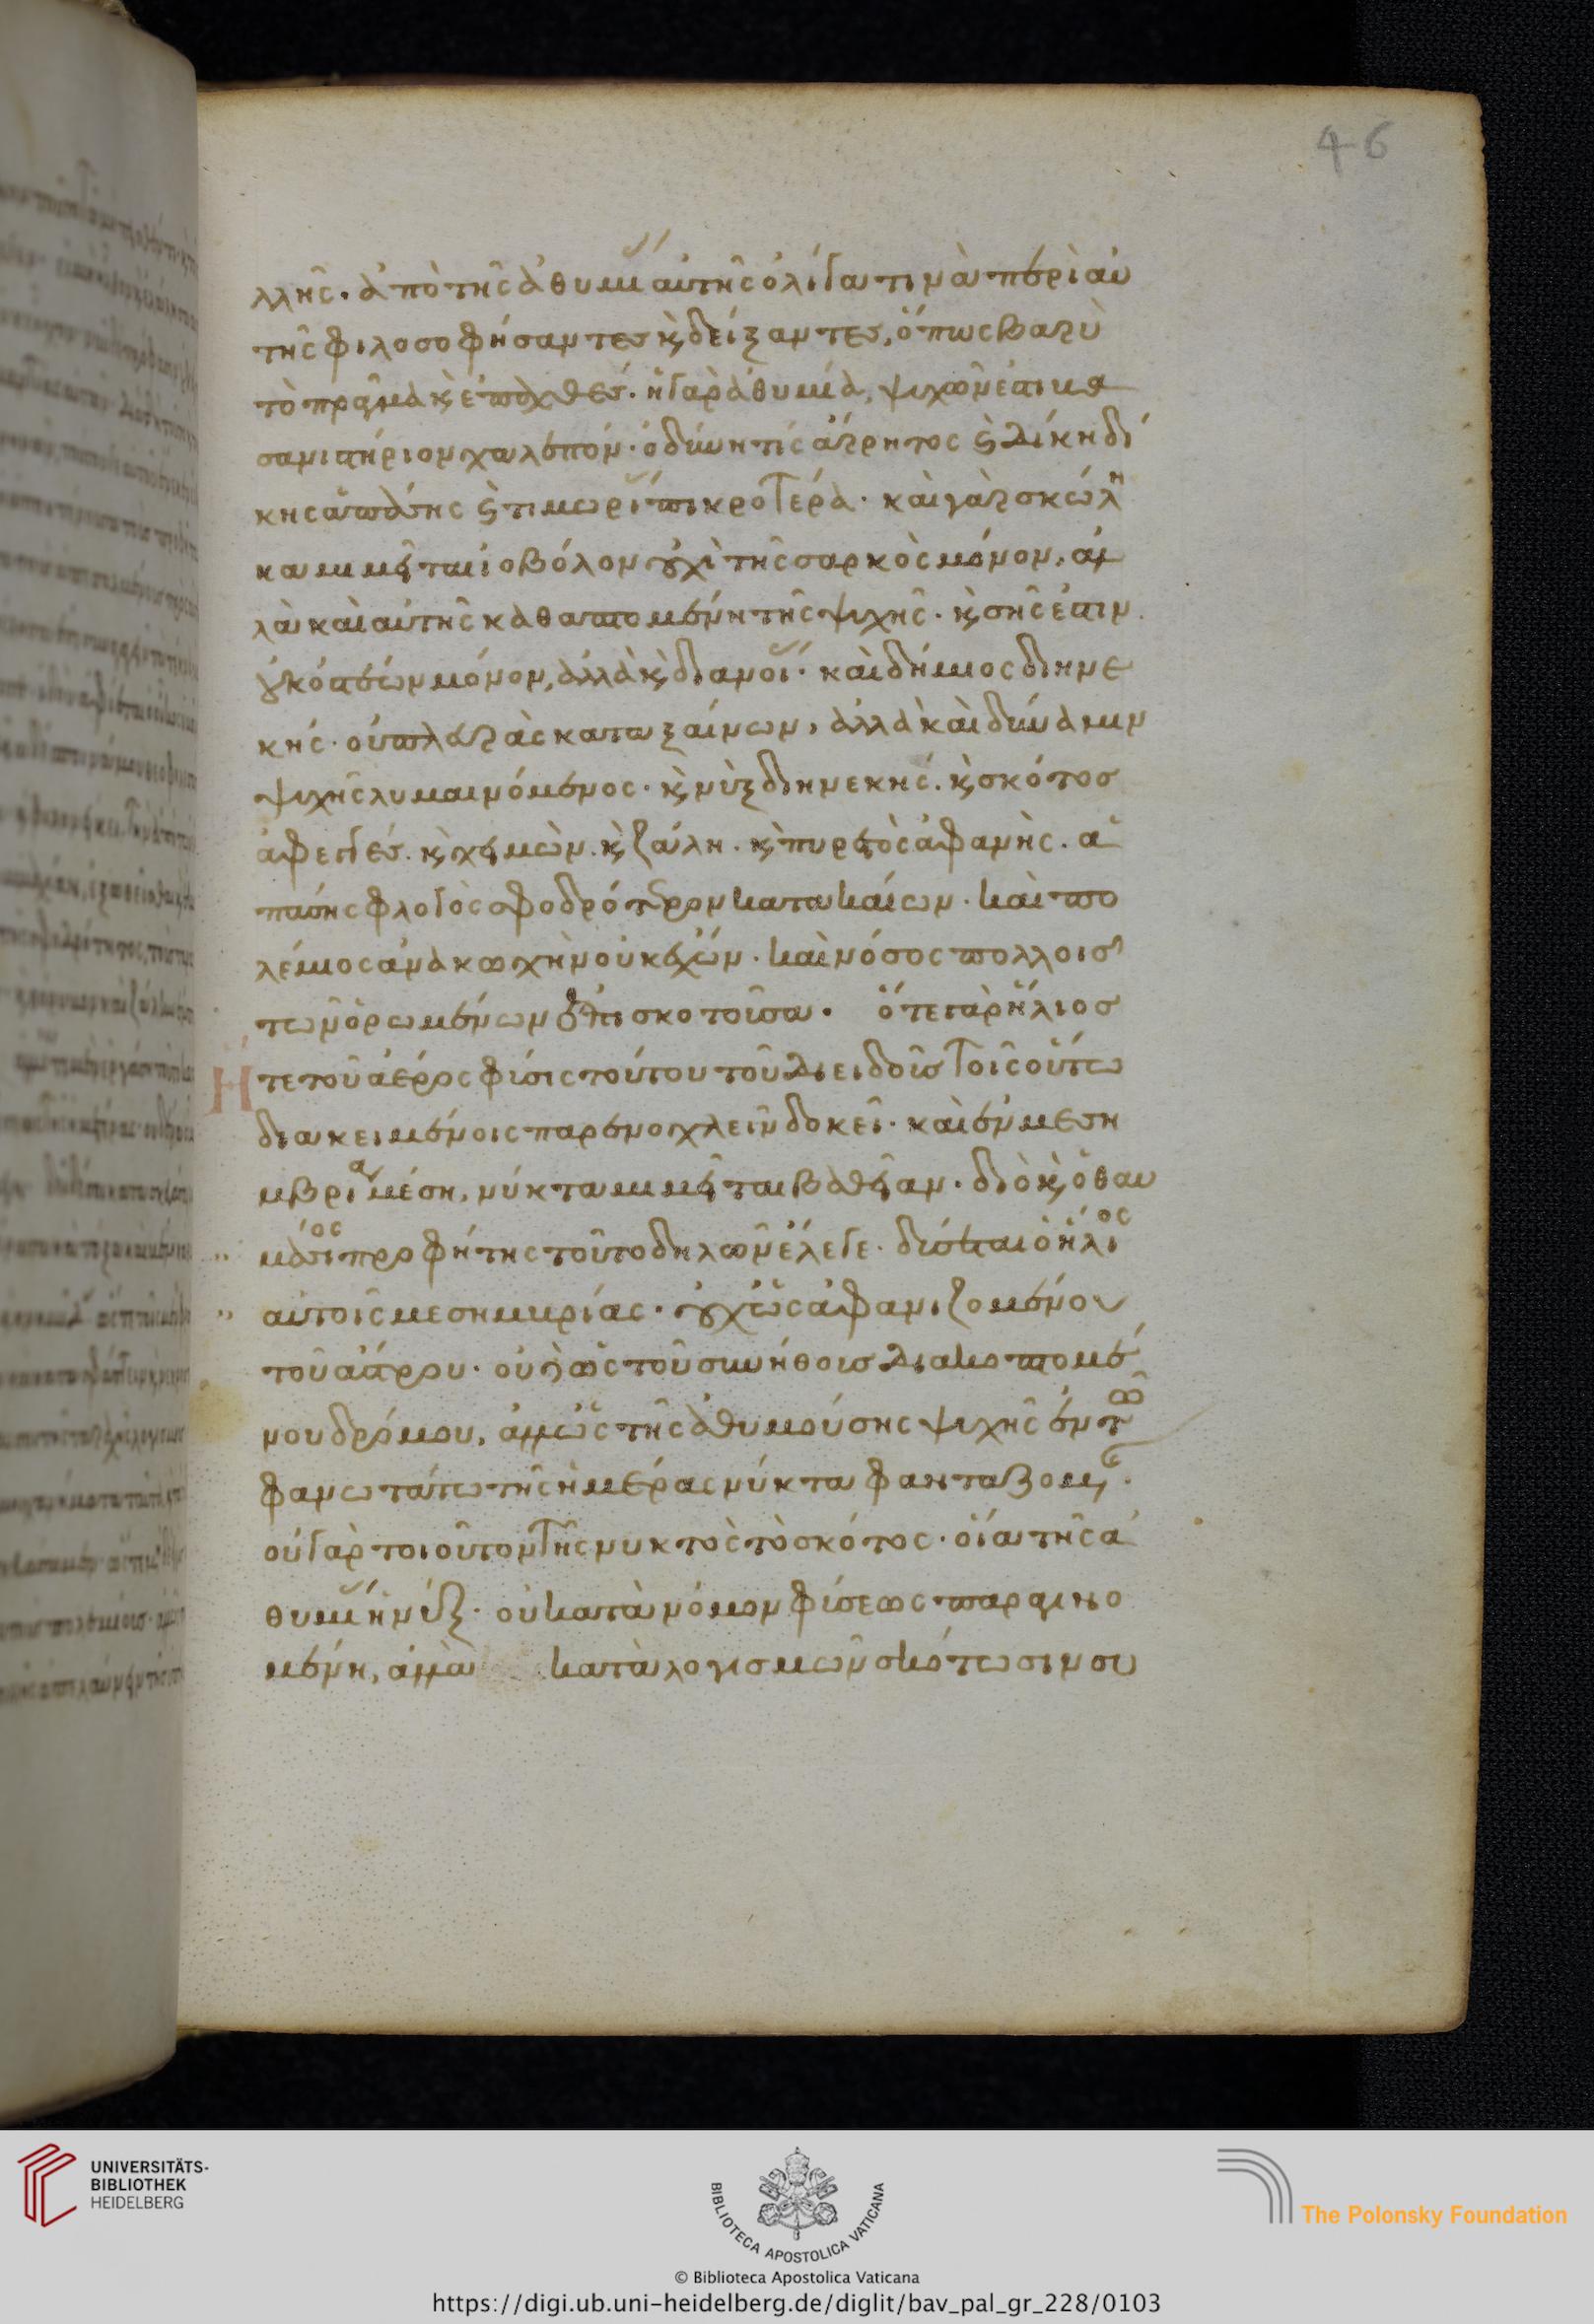 46
λλης· ἀπὸ τῆς ἀθυμί αὐτῆς ὀλίγα τινὰ περὶ αὐ
τῆς φιλοσοφήσαντες κ δείξαντες, ὅπως βαρὺ
τὸ πρᾶγμα κ ἐπαχθές· ἡ γὰρ ἀθυμία, ψυχῶν ἐστι βα
σανιστήριον χαλεπόν· ὀδύνη τίς ἄρρητος κ δίκη δί
κης ἁπάσης κ τιμωρί πικροτέρα· καὶ γὰρ σκώλη
κα μιμεῖται ἰοβόλον οὐχὶ τῆς σαρκὸς μόνον, ἀλ
λὰ καὶ αὐτῆς καθαπτομένη τῆς ψυχῆς· κ σής ἐστιν
οὐκ ὀστέων μόνον, ἀλλὰ κ διανοί· καὶ δήμιος διηνε
κής· οὐ πλευρὰς καταξαίνων, ἀλλὰ καὶ δύναμιν
ψυχῆς λυμαινόμενος· κ νὺξ διηνεκής· κ σκότος
ἀφεγγές· κ χειμὼν· κ ζάλη· κ πυρετὸς ἀφανὴς· ἁ
πάσης φλογὸς σφοδρότερον κατακαίων· καὶ πό
λεμος ἀνακωχὴν οὐκ ἔχων· καὶ νόσος πολλοῖς
τῶν ὁρωμένων ἐπισκοτοῦσα· ὅτε γὰρ ἥλιος
Ἥτε τοῦ ἀέρος φύσις τούτου τοῦ διειδοῦς τοῖς οὕτω
διακειμένοις παρενοχλεῖν δοκεῖ· καὶ ἐν μεση
μβρίᾳ μέσῃ, νύκτα μιμεῖται βαθεῖαν· διὸ κ ὁ θαυ
μάσιος προφήτης τοῦτο δηλῶν ἔλεγε· δύσεται ὁ ἥλιος
αὐτοῖς μεσημβρίας· οὐχ ὡς ἀφανιζομένου
τοῦ ἄστρου· οὐδ ὡς τοῦ συνήθους διακοπτομέ
νου δρόμου, ἀλλ ὡς τῆς ἀθυμούσης ψυχῆς ἐν τῶ
φανωτάτω τῆς ἡμέρας νύκτα φανταζομ
οὐ γὰρ τοιοῦτον τῆς νυκτὸς τὸ σκότος· οἵα τῆς ἀ
θυμί ἡ νύξ· οὐ κατὰ νόμον φύσεως παραγινο
μένη, ἀλλὰ κατὰ λογισμῶν σκότωσιν συ
UNIVERSITÄTS-
BIBLIOTHEK
HEIDELBERG
BIBLIOTECA APOSTOLICA VATICANA
The Polonsky Foundation
© Biblioteca Apostolica Vaticana
https://digi.ub.uni-heidelberg.de/diglit/bav_pal_gr_228/0103